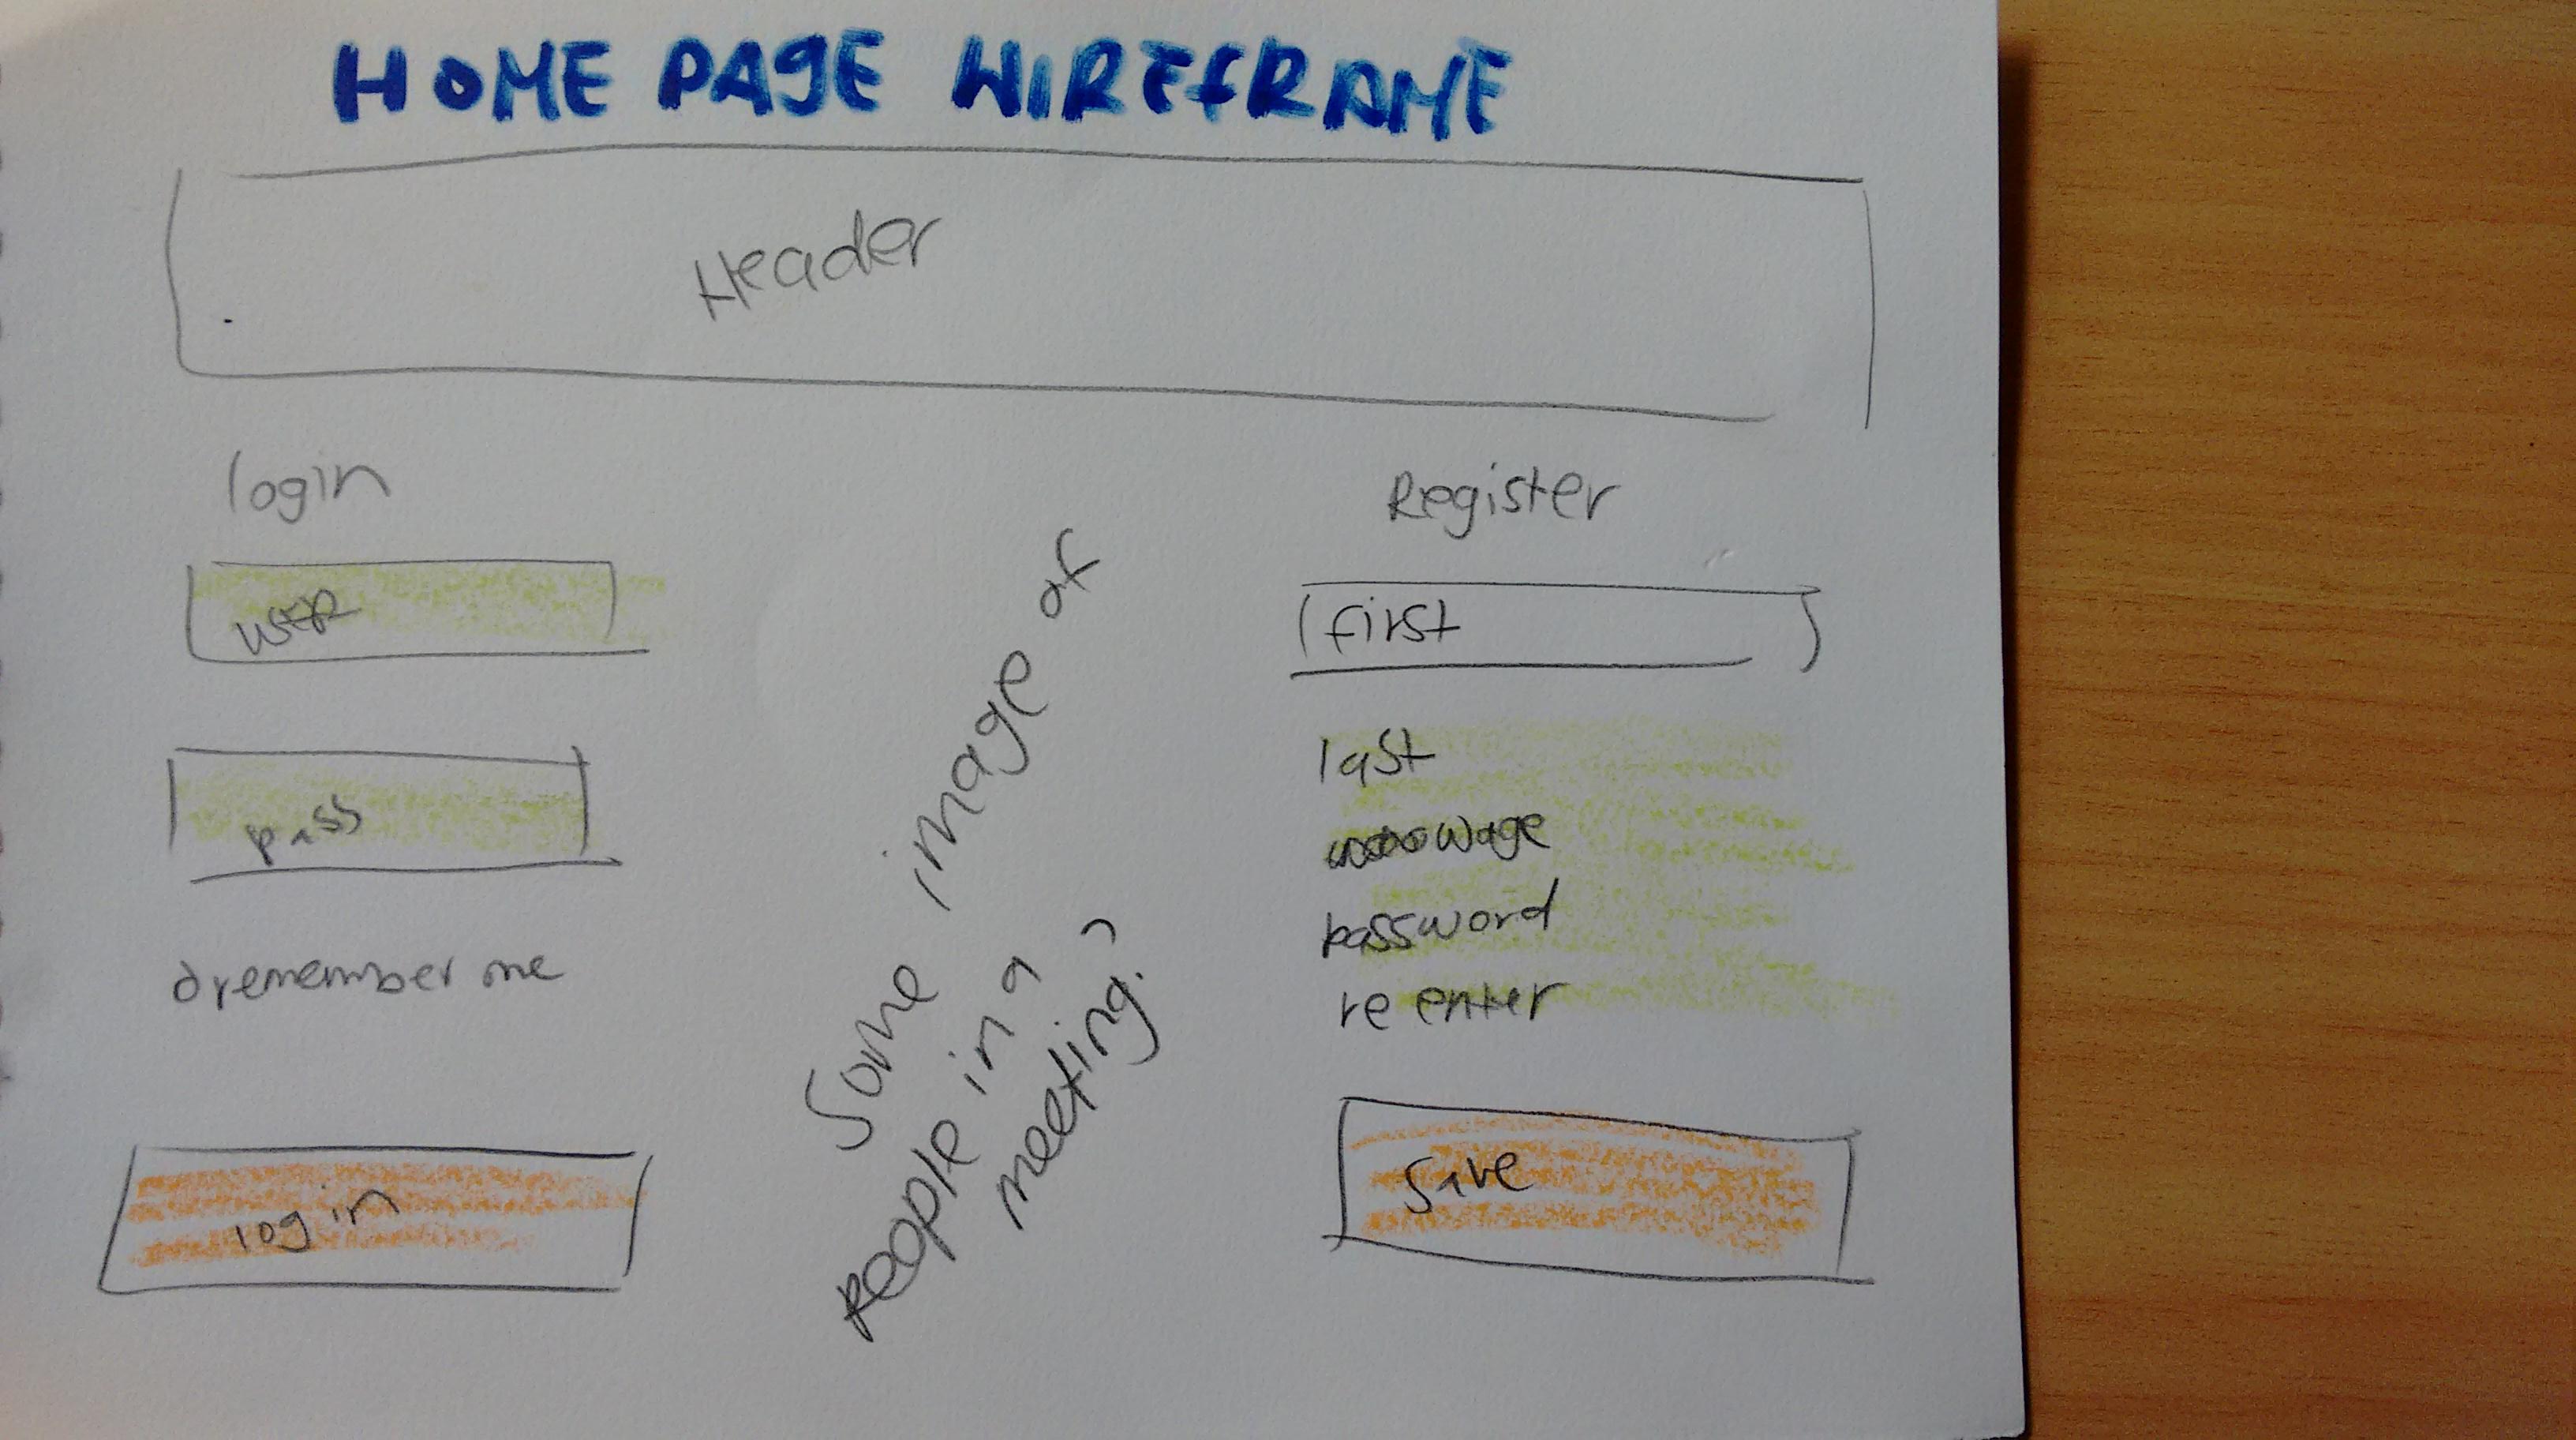 HOME PAGE WIREFRAME
Header
login
user
pass
o remember me
log in
Some image of
people in a
meeting?
Register
first
last
wage
password
re enter
Save